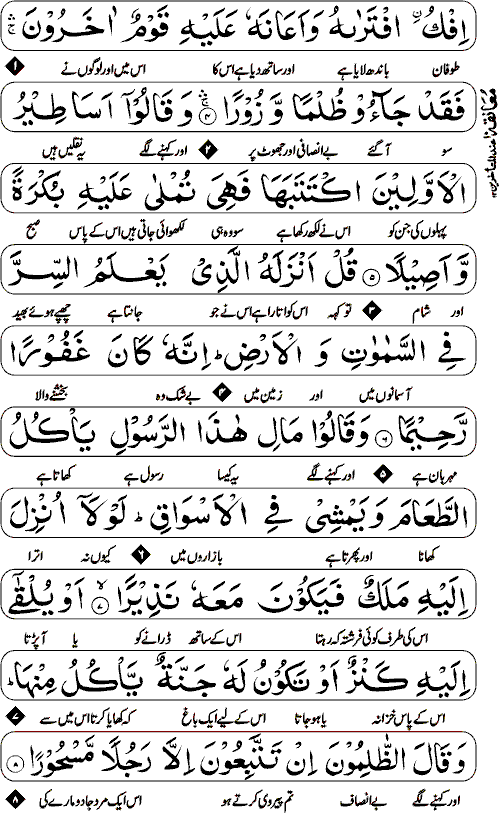 اِفْكُ ۨ افْتَرٰىهُ وَ اَعَانَهٗ عَلَيْهِ قَوْمٌ اٰخَرُوْنَ ۚۛ
طوفان باندھ لایا ہے اور ساتھ دیا ہے اس کا اس میں اور لوگوں نے ۱
فَقَدْ جَآءُوْ ظُلْمًا وَّ زُوْرًا ۚۛ ۴ وَ قَالُوْۤا اَسَاطِيْرُ
سو آ گئے بے انصافی اور جھوٹ پر ۲ اور کہنے لگے یہ نقلیں ہیں
الْاَوَّلِيْنَ اكْتَتَبَهَا فَهِيَ تُمْلٰى عَلَيْهِ بُكْرَةً
پہلوں کی جن کو اس نے لکھ رکھا ہے سو وہ ہی لکھوائی جاتی ہیں اس کے پاس صبح
وَّ اَصِيْلًا ۵ قُلْ اَنْزَلَهُ الَّذِيْ يَعْلَمُ السِّرَّ
اور شام ۳ تو کہہ اس کو اتارا ہے اس نے جو جانتا ہے چھپے ہوئے بھید
فِي السَّمٰوٰتِ وَ الْاَرْضِ ؕ اِنَّهٗ كَانَ غَفُوْرًا
آسمانوں میں اور زمین میں ۴ بے شک وہ بخشنے والا
رَّحِيْمًا ۶ وَ قَالُوْا مَالِ هٰذَا الرَّسُوْلِ يَاْكُلُ
مہربان ہے ۵ اور کہنے لگے یہ کیسا رسول ہے کھاتا ہے
الطَّعَامَ وَ يَمْشِيْ فِي الْاَسْوَاقِ ؕ لَوْ لَاۤ اُنْزِلَ
کھانا اور پھرتا ہے بازاروں میں ۶ کیوں نہ اترا
اِلَيْهِ مَلَكٌ فَيَكُوْنَ مَعَهٗ نَذِيْرًا ۙ ۷ اَوْ يُلْقٰۤى
اس کی طرف کوئی فرشتہ کہ رہتا اس کے ساتھ ڈرانے کو یا آ پڑتا
اِلَيْهِ كَنْزٌ اَوْ تَكُوْنُ لَهٗ جَنَّةٌ يَّاْكُلُ مِنْهَا ؕ
اس کے پاس خزانہ یا ہو جاتا اس کے لیے ایک باغ کہ کھایا کرتا اس میں سے ۷
وَ قَالَ الظّٰلِمُوْنَ اِنْ تَتَّبِعُوْنَ اِلَّا رَجُلًا مَّسْحُوْرًا ۸
اور کہنے لگے بے انصاف تم پیروی کرتے ہو اس ایک مرد جادو مارے کی ۸